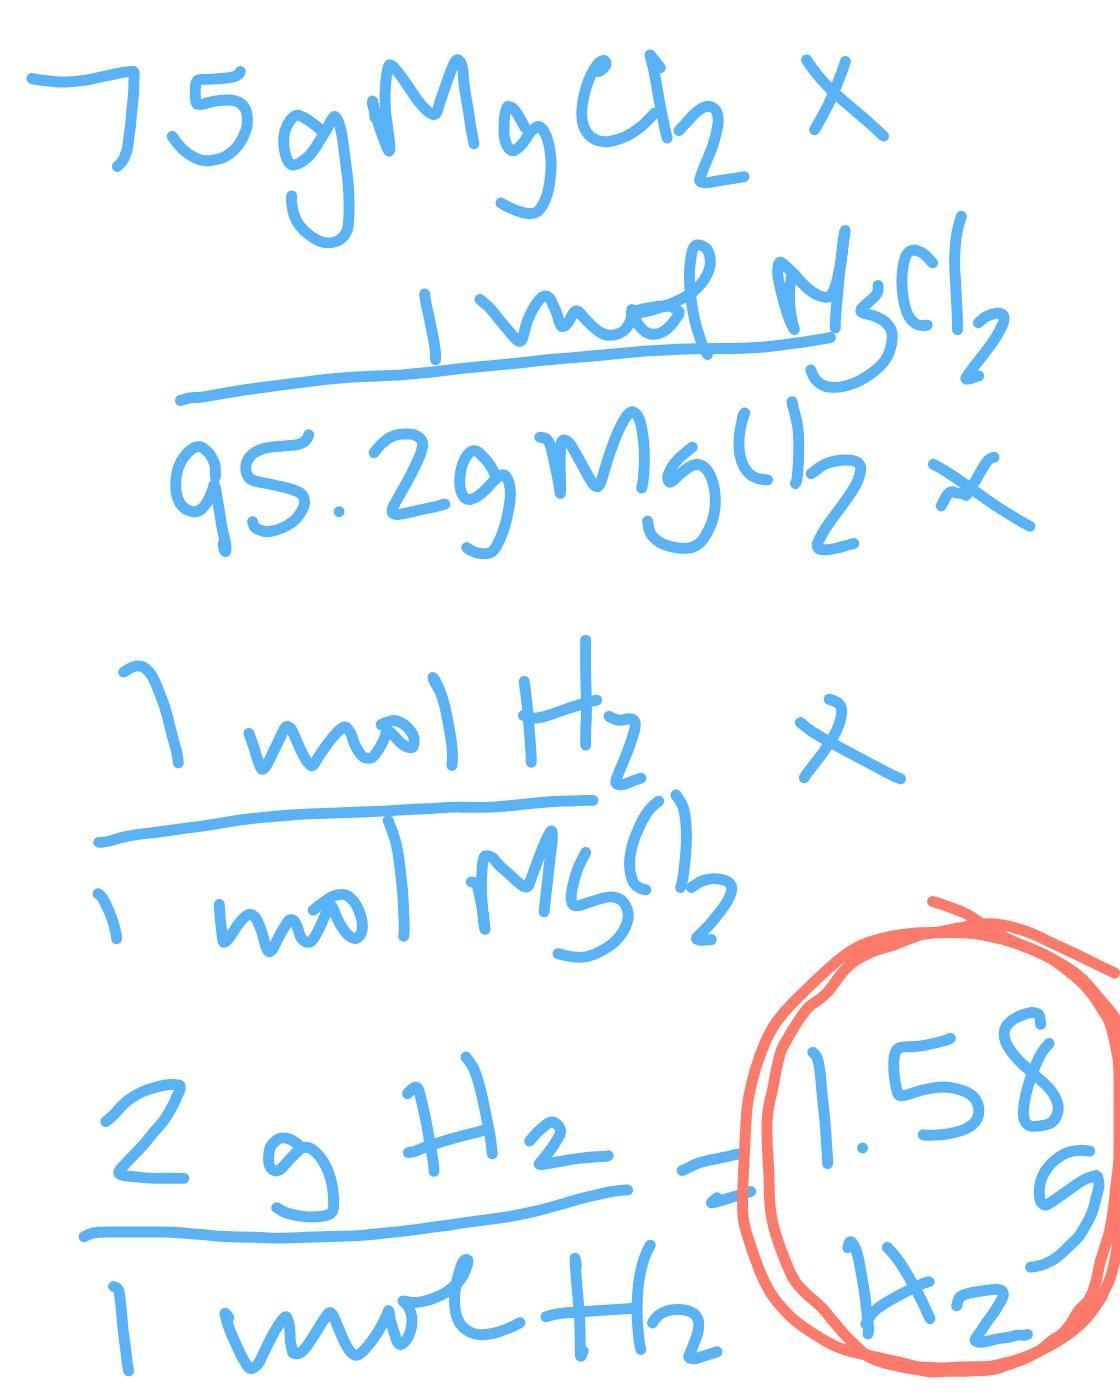 75gMgCl₂ x
1 mol MgCl₂
95.2g MgCl₂ x
1 mol H₂ x
1 mol MgCl₂
2 g H₂ = 1.58 g H₂
1 mol H₂